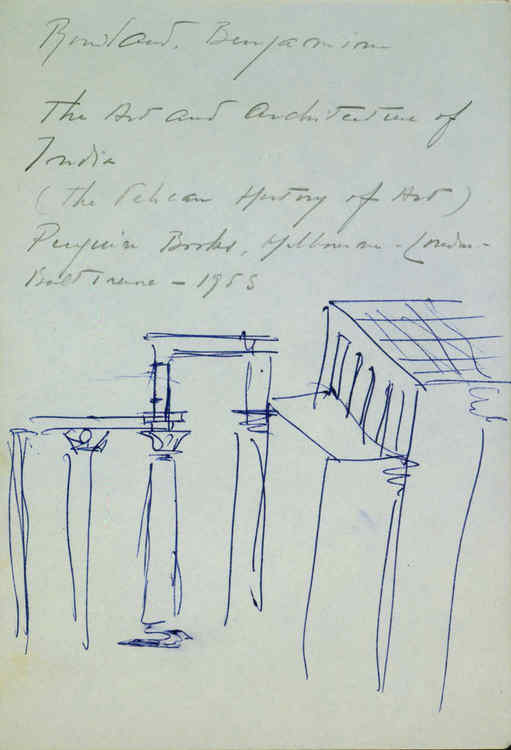 Rowland, Benjamin
The Art and Architecture of
India
(The Pelican History of Art)
Penguin Books, Melbourne - London -
Baltimore - 1953